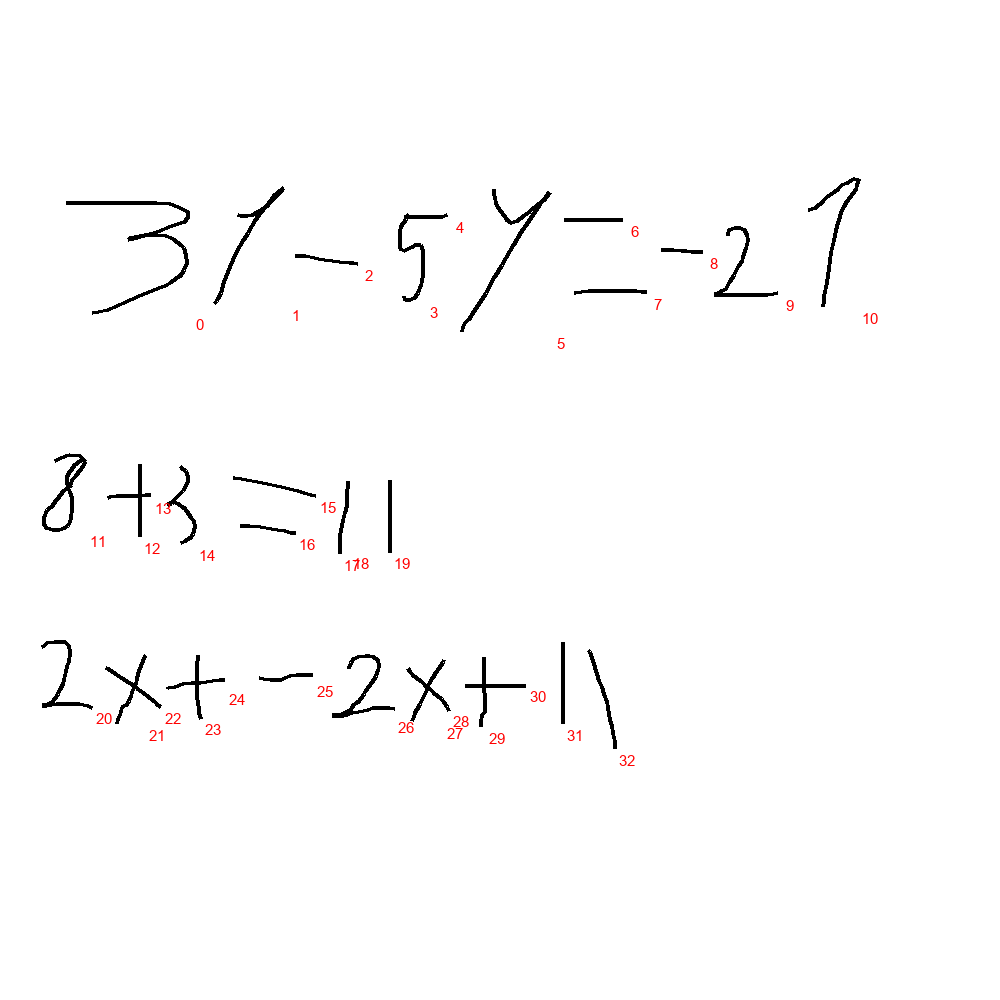 3y-5y=-21
0 1 2 3 4 5 6 7 8 9 10
8+3=11
11 12 13 14 15 16 17 18 19
2x+-2x+11
20 21 22 23 24 25 26 27 28 29 30 31 32